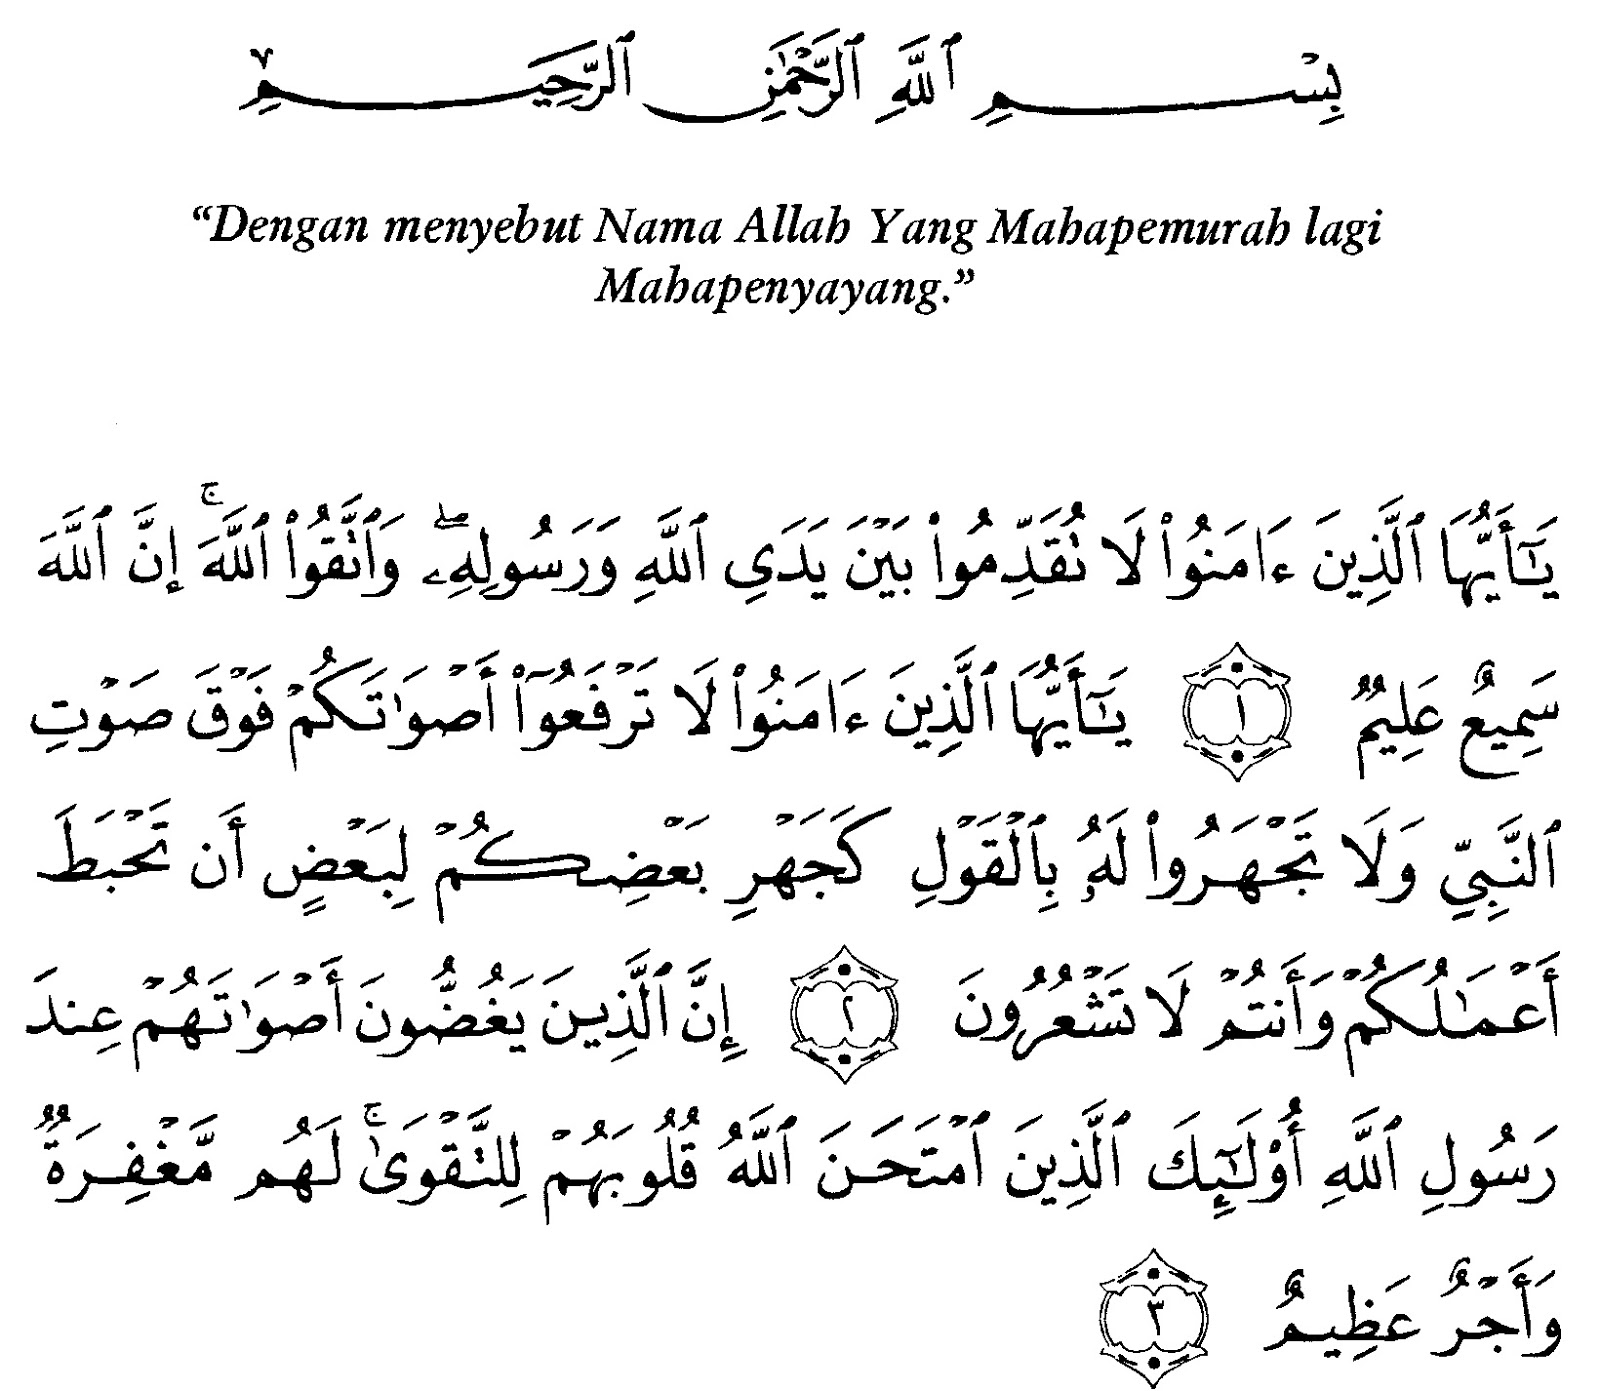 بِسْمِ ٱللَّهِ ٱلرَّحْمَٰنِ ٱلرَّحِيمِ
“Dengan menyebut Nama Allah Yang Mahapemurah lagi
Mahapenyayang.”
يَٰٓأَيُّهَا ٱلَّذِينَ ءَامَنُوا۟ لَا تُقَدِّمُوا۟ بَيْنَ يَدَىِ ٱللَّهِ وَرَسُولِهِۦ ۖ وَٱتَّقُوا۟ ٱللَّهَ ۚ إِنَّ ٱللَّهَ
سَمِيعٌ عَلِيمٌ ١ يَٰٓأَيُّهَا ٱلَّذِينَ ءَامَنُوا۟ لَا تَرْفَعُوٓا۟ أَصْوَٰتَكُمْ فَوْقَ صَوْتِ
ٱلنَّبِىِّ وَلَا تَجْهَرُوا۟ لَهُۥ بِٱلْقَوْلِ كَجَهْرِ بَعْضِكُمْ لِبَعْضٍ أَن تَحْبَطَ
أَعْمَٰلُكُمْ وَأَنتُمْ لَا تَشْعُرُونَ ٢ إِنَّ ٱلَّذِينَ يَغُضُّونَ أَصْوَٰتَهُمْ عِندَ
رَسُولِ ٱللَّهِ أُو۟لَٰٓئِكَ ٱلَّذِينَ ٱمْتَحَنَ ٱللَّهُ قُلُوبَهُمْ لِلتَّقْوَىٰ ۚ لَهُم مَّغْفِرَةٌ
وَأَجْرٌ عَظِيمٌ ٣